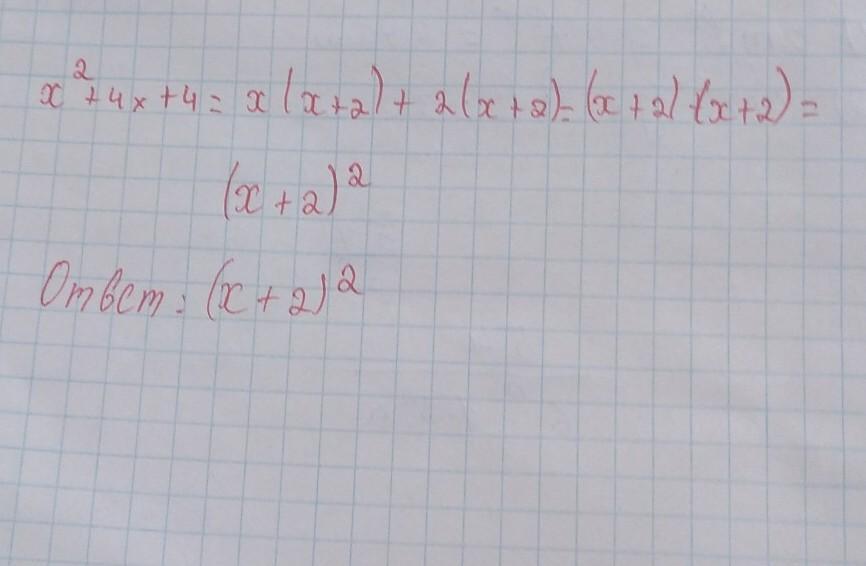 x² + 4x + 4 = x(x+2) + 2(x+2) = (x+2)·(x+2) =
(x+2)²
Ответ: (x+2)²